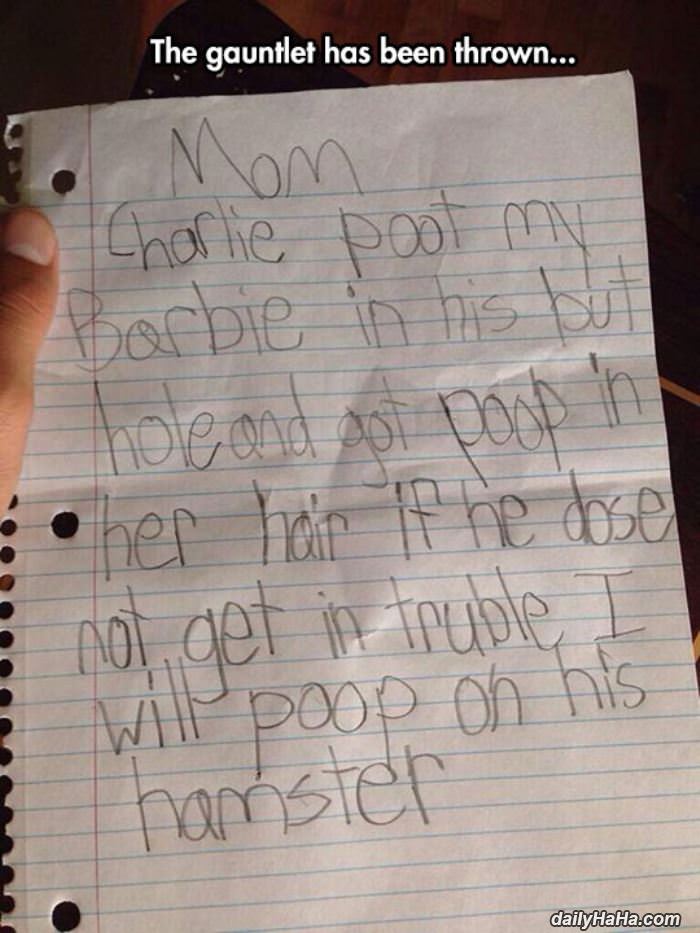 The gauntlet has been thrown...
Mom
Charlie poot my
Barbie in his but
hole and got poop in
her hair if he dose
not get in truble I
will poop on his
hamster
dailyHaHa.com